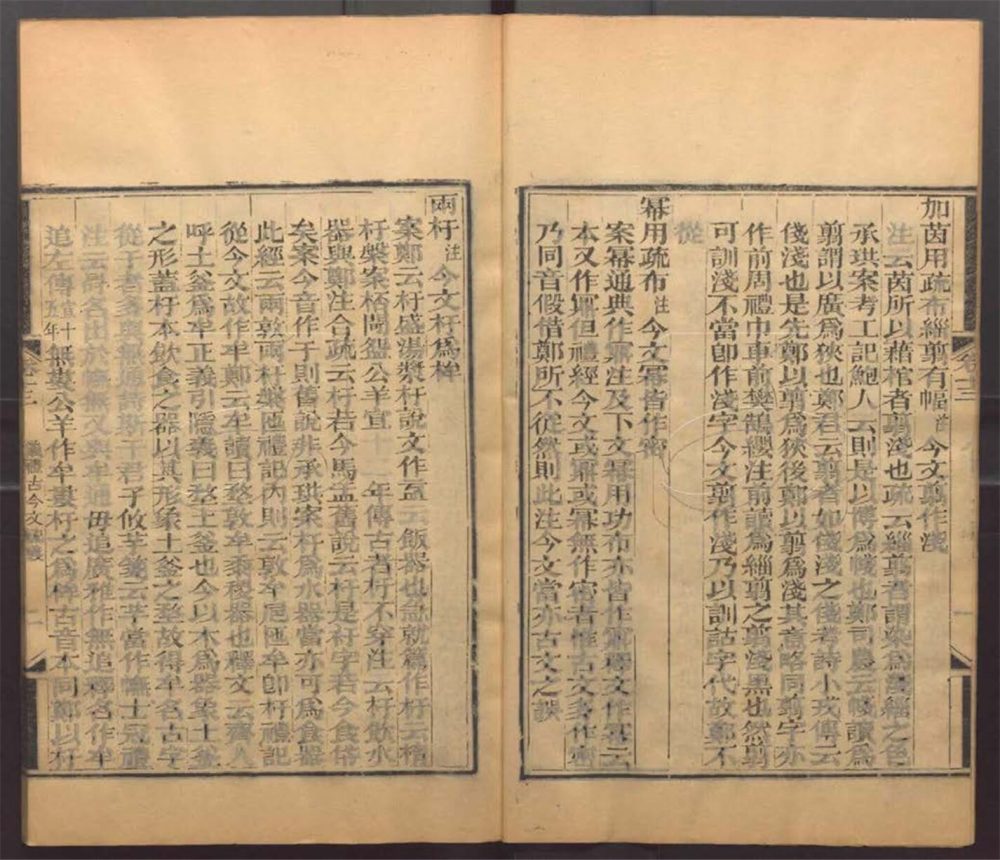 加茵用疏布緇翦有幅注今文翦作淺
注云茵所以藉棺者翦淺也疏云緇翦者謂染爲淺緇之色
承珙案考工記鮑人云則是以博爲帴也鄭司農云帴讀爲
翦謂以廣爲狹也鄭君云翦者如俴淺之俴者詩小戎傳云
俴淺也是先鄭以翦爲狹後鄭以翦爲淺其音略同翦字亦
作前周禮巾車前樊鵠纓注前讀爲緇翦之翦淺黑也然翦
可訓淺不當卽作淺字今文翦作淺乃以訓詁字代故鄭不
從
冪用疏布注今文冪皆作密
案冪通典作鼏注及下文冪用功布亦皆作鼏釋文作冪云
本又作鼏但禮經今文或鼏或冪無作密者惟古文多作密
乃同音假借鄭所不從然則此注今文當亦古文之誤
卷十三
一
兩杅注今文杅爲桙
案鄭云杅盛湯漿杅說文作盂云飯器也急就篇作杅云橢
杅槃案桮閜盌公羊宣十二年傳古者杅不穿注云杅飲水
器與鄭注合疏云杅若今馬盂舊說云杅是杅字若今食㯓
矣案今音作于則舊說非承珙案杅爲水器當亦可爲食器
此經云兩敦兩杅槃匜禮記內則云敦牟巵匜牟卽杅禮記
從今文故作牟鄭云牟讀曰堥敦牟黍稷器也釋文云齊人
呼土釜爲牟正義引隱義曰堥土釜也今以木爲器象土釜
之形蓋杅本飲食之器以其形象土釜之堥故得牟名古字
從于者多與無通詩斯干君子攸芋箋云芋當作幠士冠禮
注云冔名出於幠無又與牟通 毋追廣雅作無追釋名作牟
追左傳宣十五年無婁公羊作牟婁杅之爲桙古音本同鄭以杅
卷十三
儀禮古今文疏義
一